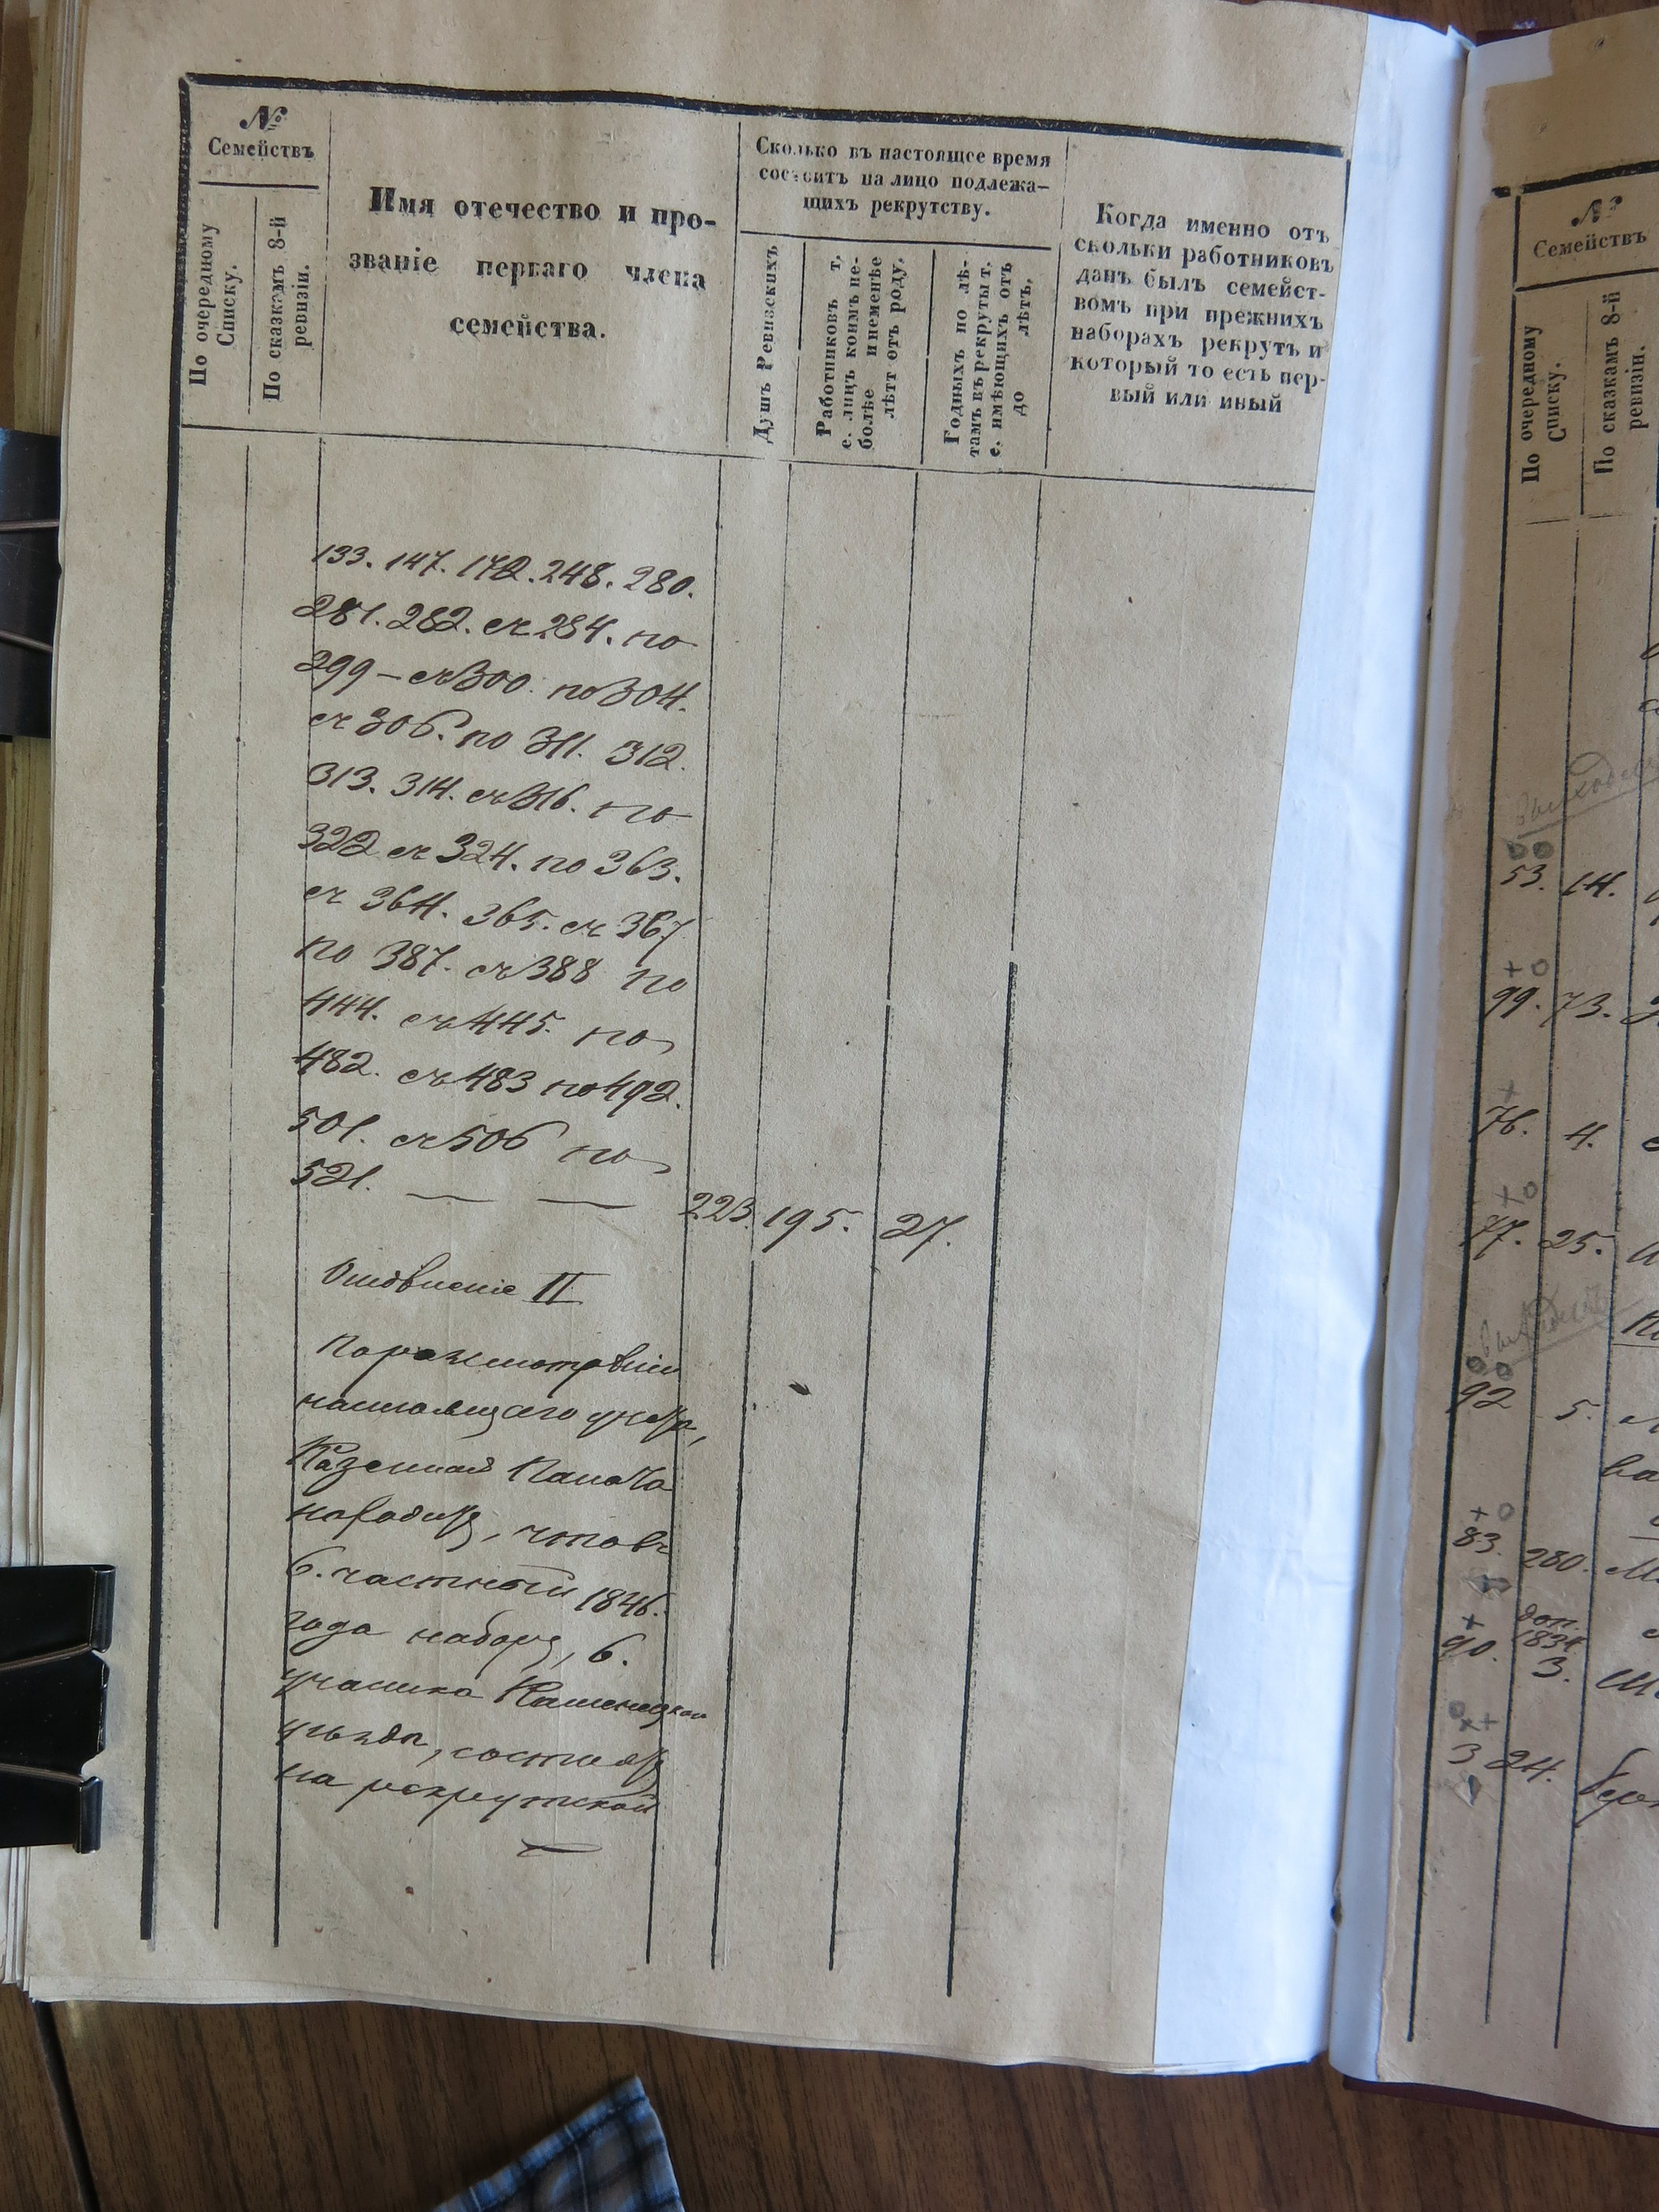 №
Семействъ
По очередному
Списку.
По сказкамъ 8-й
ревизіи.
Имя отечество и про-
званіе перваго члена
семейства.
Сколько въ настоящее время
состоитъ на лицо подлежа-
щихъ рекрутству.
Душъ Ревизскихъ
Работниковъ т.
е. лицъ коимъ не-
болѣе и неменѣе
лѣтт отъ роду.
Годныхъ по лѣ-
тамъ въ рекруты т.
е. имѣющихъ отъ
до лѣтъ.
Когда именно отъ
скольки работниковъ
данъ былъ семейст-
вомъ при прежнихъ
наборахъ рекрутъ и
который то есть пер-
вый или иный
133. 147. 172. 248. 280.
281. 282. съ 284. по
299 – съ 300. по 304.
съ 306. по 311. 312.
313. 314. съ 316. по
322 съ 324. по 363.
съ 364. 365. съ 367
по 387. съ 388 по
444. съ 445. по
482. съ 483 по 492.
501. съ 506 по
521. — — 223. 195. 27.
II
По разсмотрѣніи
настоящаго
Казенная Палата
находитъ, что въ
6. частный 1846.
года наборъ, 6.
участка Каменецкой
уѣзда, состоятъ
на рекрутской
№
Семействъ
По очередному
Списку.
По сказкамъ 8-й
ревизіи.
53. 14.
99. 73.
76. 4.
77. 25.
92 5.
83. 280.
доп.
1834
90. 3.
3 24.